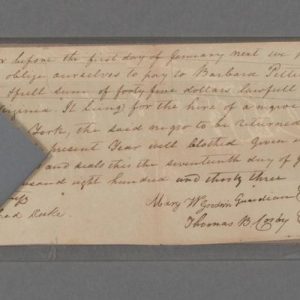 or before the first day of January next we
oblige ourselves to pay to Barbara
full sum of forty five dollars lawfull
it being for the hire of a negroe
York, the said negro to be returned
present Year well clothed Given
and seals this the seventeenth day of
eight hundred and thirty three
Mary W Goodwin Guardian
Thomas B Cosby